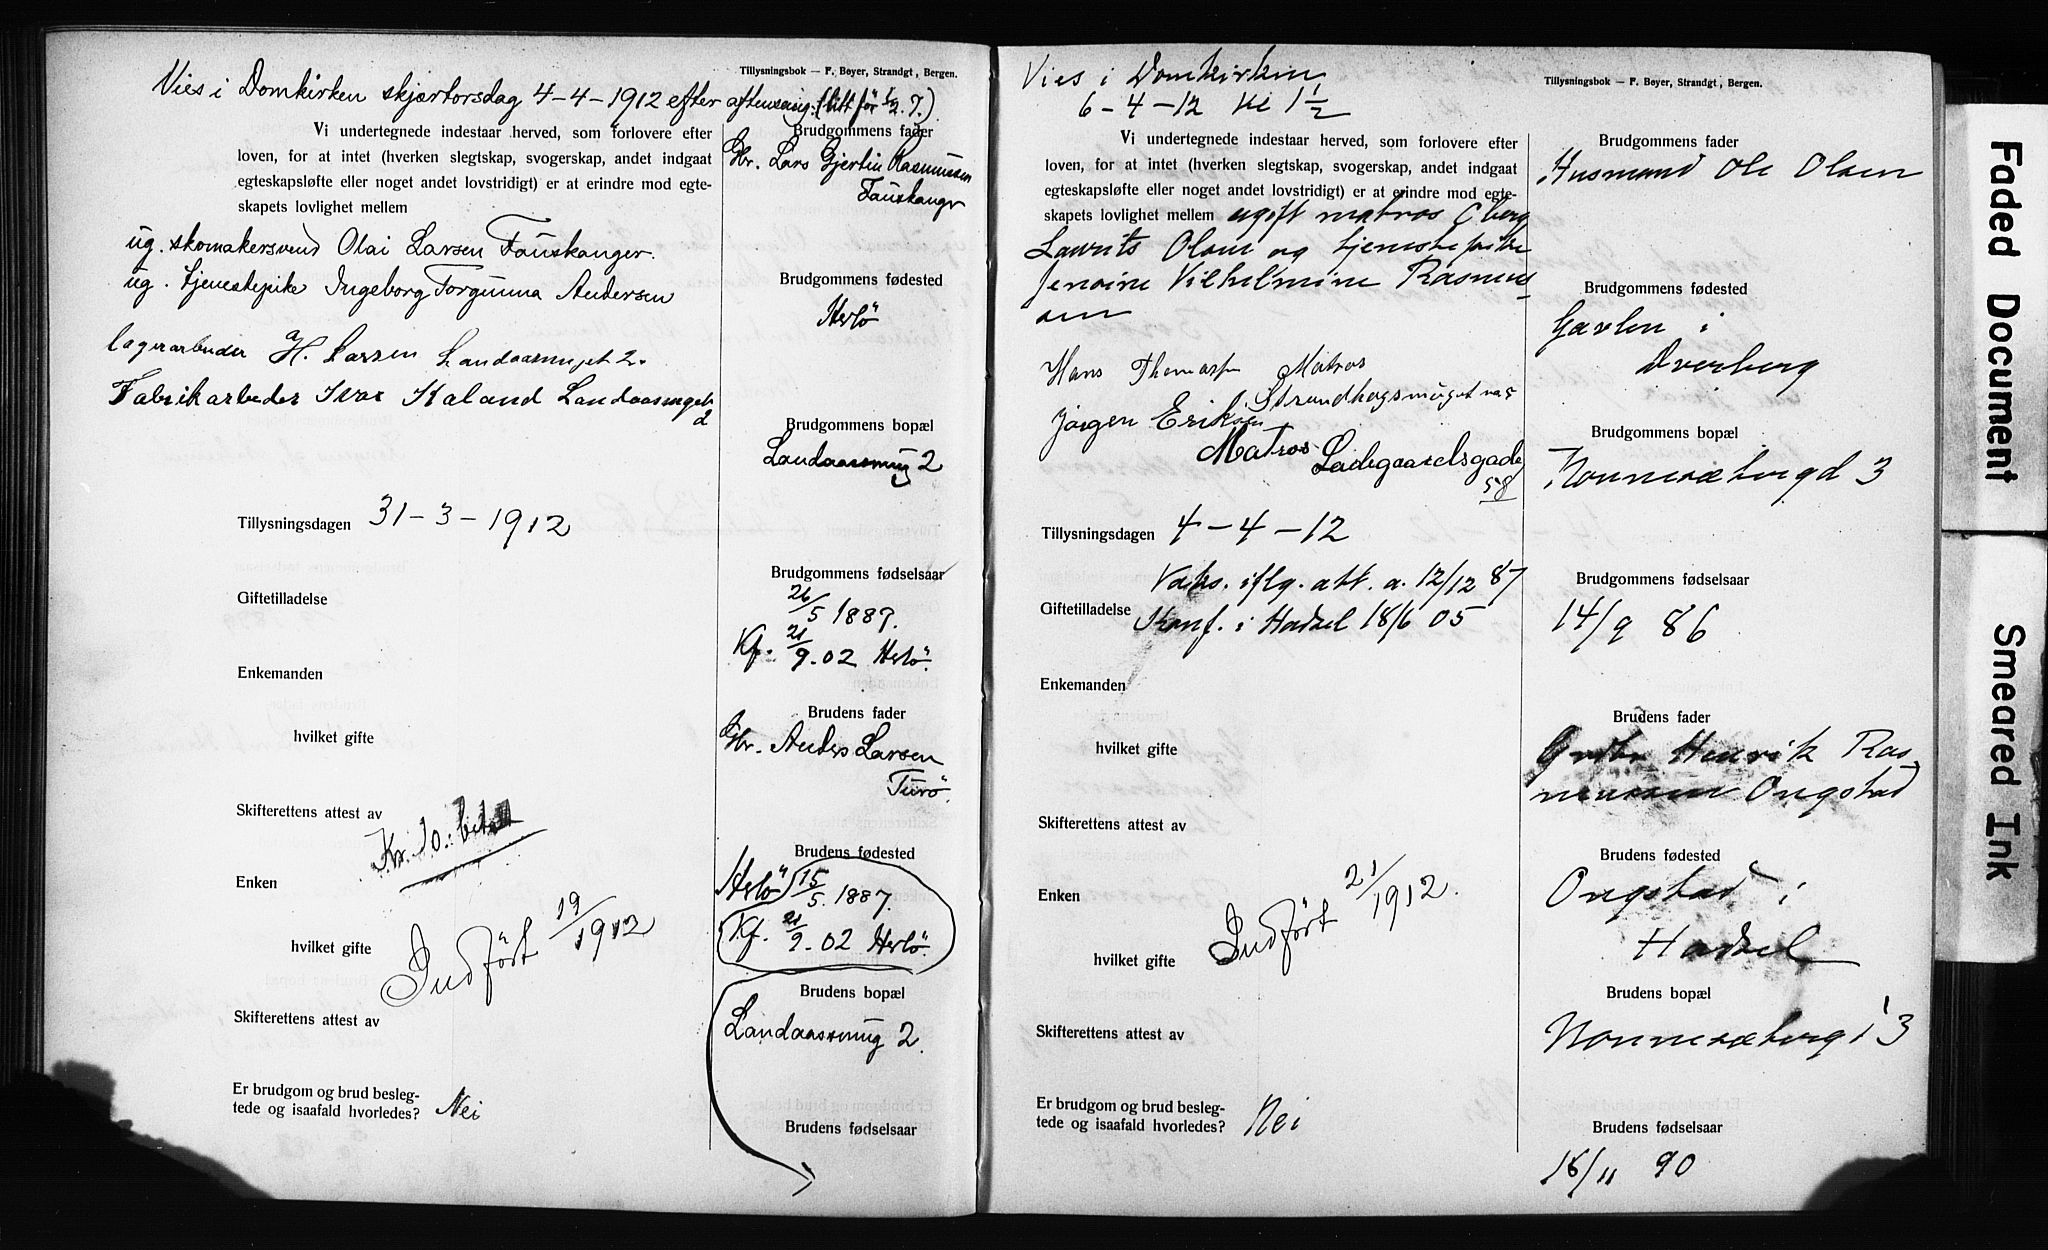 Tillysningsbok — F. Beyer, Strandgt, Bergen.
Vies i Domkirken skjærtorsdag 4-4-1912 efter aftensang. (litt før ½ 7.)
Vi undertegnede indestaar herved, som forlovere efter
loven, for at intet (hverken slegtskap, svogerskap, andet indgaat
egteskapsløfte eller noget andet lovstridigt) er at erindre mod egte-
skapets lovlighet mellem
ug. skomakersvend Olai Larsen Fauskanger.
ug. tjenestepike Ingeborg Torgunna Andersen
lagerarbeder H. Larsen Landaasmuget 2.
Fabrikarbeder Ivar Kaland Landaasmuget
2
Tillysningsdagen 31-3-1912
Giftetilladelse
Enkemanden
hvilket gifte
Skifterettens attest av
Kr. 10: betalt
Enken
hvilket gifte
Indført 19/1912
Skifterettens attest av
Er brudgom og brud beslegtede
og isaafald hvorledes? Nei
Brudgommens fader
Gbr. Lars Gjertin Rasmussen
Fauskanger
Brudgommens fødested
Herlö
Brudgommens bopæl
Landaassmug 2
Brudgommens fødselsaar
26/5 1887.
Kf. 21/9.02 Herlö.
Brudens fader
Gbr. Anders Larsen
Turö.
Brudens fødested
Herlö 15/5. 1887.
Kf. 21/9.02 Herlö.
Brudens bopæl
Landaassmug 2.
Brudens fødselsaar
Tillysningsbok — F. Beyer, Strandgt, Bergen.
Vies i Domkirken
6-4-12 kl 1½
Vi undertegnede indestaar herved, som forlovere efter
loven, for at intet (hverken slegtskap, svogerskap, andet indgaat
egteskapsløfte eller noget andet lovstridigt) er at erindre mod egte-
skapets lovlighet mellem ugift matros
Laurits Olsen og tjenestepike
Jensine Vilhelmine Rasmus
sen
Hans Thomassen Matros
Strandhagsmuget no 5
Jørgen Eriksen
Matros Ladegaardsgade
58
Tillysningsdagen 4-4-12
Vaks. iflg. att. a. 12/12 87
Giftetilladelse Konf. i Hadsel 18/6 05
Enkemanden
hvilket gifte
Skifterettens attest av
Enken
hvilket gifte
Indført 21/1912.
Skifterettens attest av
Er brudgom og brud beslegtede
og isaafald hvorledes? Nei
Brudgommens fader
Husmand Ole Olsen
Brudgommens fødested
Gavlen i
Dverberg
Brudgommens bopæl
Nonnesæterg 3
Brudgommens fødselsaar
14/9 86
Brudens fader
Grdbr Henrik Ras
mussen Ongstad
Brudens fødested
Ongstad i
Hadsel
Brudens bopæl
Nonnesæterg 13
Brudens fødselsaar
16/11 90
Faded Document
Smeared Ink